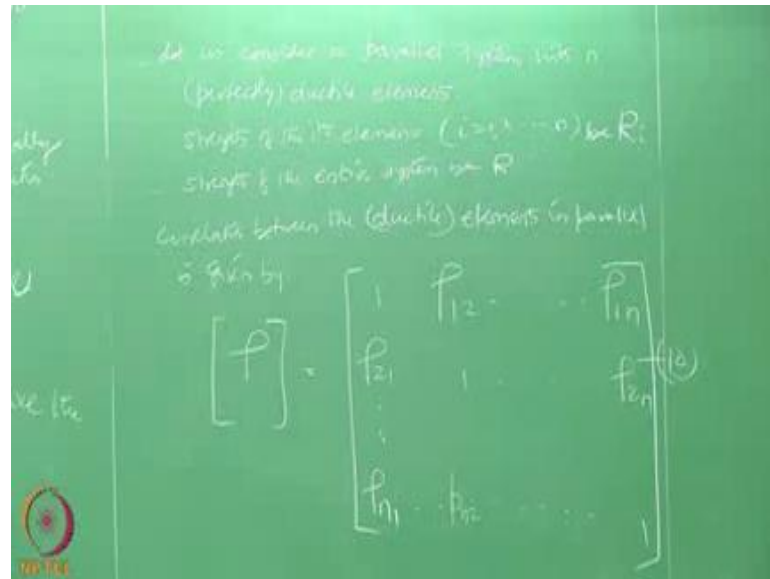 let us consider a parallel system with n
(perfectly) ductile element
strength of the ith element (i=1,2 ... n) be Ri
strength of the entire system be R
Correlation between the (ductile) elements in parallel
is given by
[ρ] = [ 1 ρ12 . . . . ρ1n
ρ21 1 . . . ρ2n
:
ρn1 . . ρn2 . . . . . 1 ] — (10)
ally
ve the
NPTEL